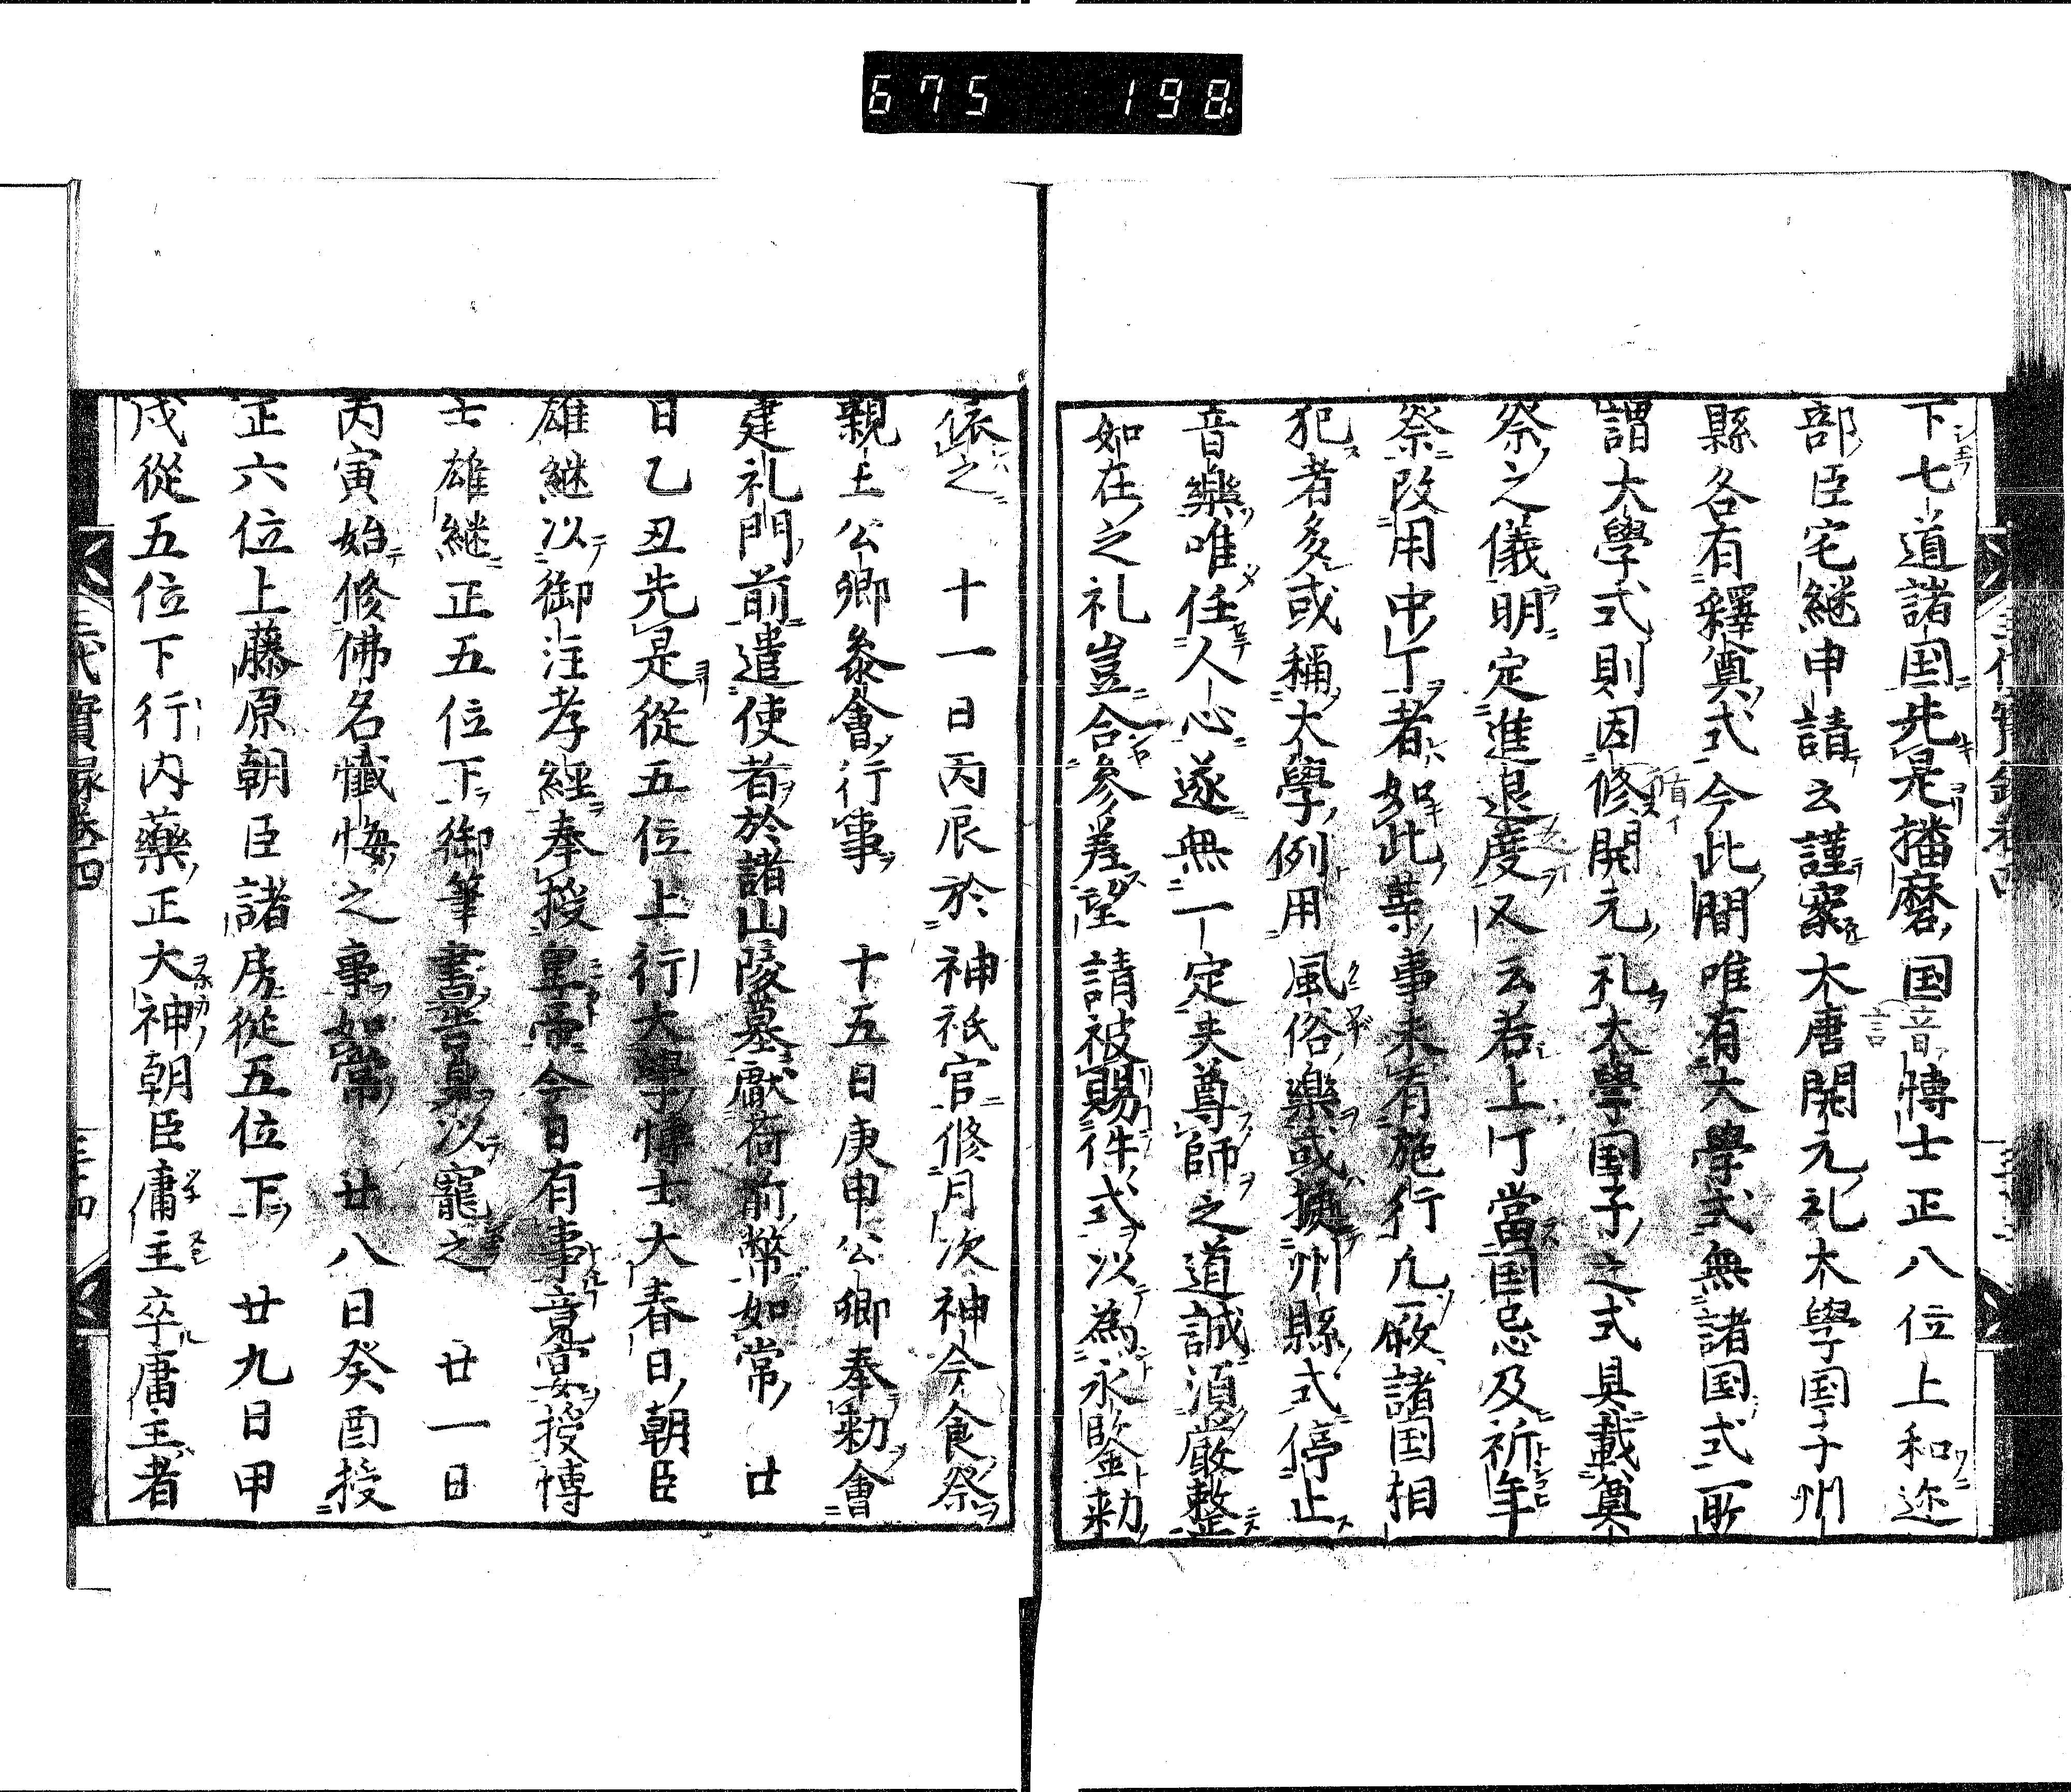 675 198
下七道諸国先是播磨国音博士正八位上和迩
部臣宅継申請云謹案大唐開元礼大學国子州
縣各有釋奠式今此間唯有大学式無諸国式所
謂大學式則因修開元礼大學国子之式具載奠
祭之儀明定進退度又云若上丁當国忌及祈年
祭改用中丁者如此䓁事未有施行凢厥諸国相
犯者多或稱大學例用風俗樂或換州縣式停止
音樂唯任人心遂無一定夫尊師之道誠須嚴整
如在之礼豈合參差望請被賜件式以為永鑒勅
依之　十一日丙辰於神祇官修月次神今食祭
親王公卿叅會行事　十五日庚申公卿奉勅會
建礼門前遣使者於諸山陵墓獻荷前幣如常　廿
日乙丑先是從五位上行大學博士大春日朝臣
雄継以御注孝經奉授皇帝今日有事竟宴授博
士雄継正五位下御筆書告身以寵之　廿一日
丙寅始修佛名懺悔之事如常　廿八日癸酉授
正六位上藤原朝臣諸房從五位下　廿九日甲
戌從五位下行内藥正大神朝臣庸主卒庸主者
三代實録卷四
三十四